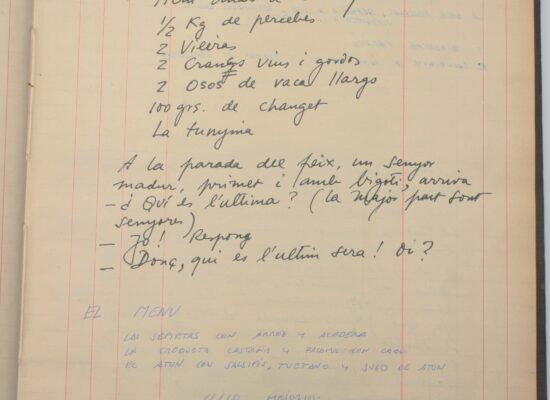 ½ Kg de percebes
2 Vieiras
2 Crancs vius i gordos
2 Osos de vaca llargs
100 grs. de changet
La tunyina
A la parada del peix, un senyor
madur, primet i amb bigoti, arriva
- ¿ Qui es l'ultima? (la major part son
senyores)
- Jo! Respong
- Donç, qui es l'ultim sera! Oi?
EL MENU
LAS SEPIETAS CON ARROZ Y ACEDERA
LA CROQUETA CASTAÑA Y
EL ATUN CON SALSIFIS, TUETANO Y JUGO DE ATUN